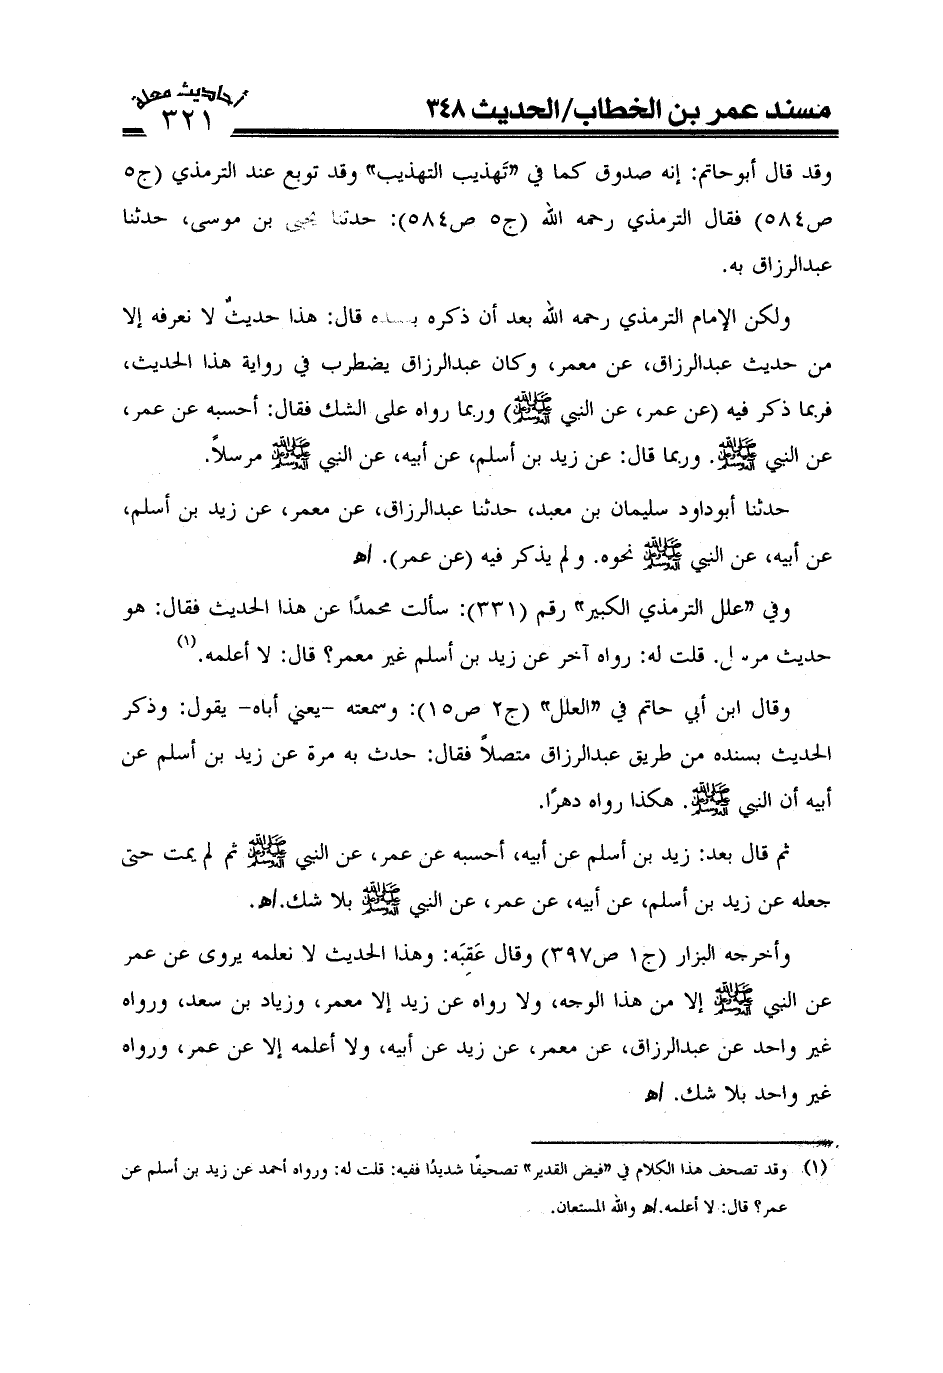 أحاديث معلة
٣٢١
مسند عمر بن الخطاب/الحديث ٣٤٨
وقد قال أبوحاتم: إنه صدوق كما في «تَهذيب التهذيب» وقد توبع عند الترمذي (ج٥
ص٥٨٤) فقال الترمذي رحمه الله (ج٥ ص٥٨٤): حدثنا يحيى بن موسى، حدثنا
عبدالرزاق به.
ولكن الإمام الترمذي رحمه الله بعد أن ذكره بسنده قال: هذا حديثٌ لا نعرفه إلا
من حديث عبدالرزاق، عن معمر، وكان عبدالرزاق يضطرب في رواية هذا الحديث،
فربما ذكر فيه (عن عمر، عن النبي ﷺ) وربما رواه على الشك فقال: أحسبه عن عمر،
عن النبي ﷺ. وربما قال: عن زيد بن أسلم، عن أبيه، عن النبي ﷺ مرسلاً.
حدثنا أبوداود سليمان بن معبد، حدثنا عبدالرزاق، عن معمر، عن زيد بن أسلم،
عن أبيه، عن النبي ﷺ نحوه. ولم يذكر فيه (عن عمر). اﻫ
وفي «علل الترمذي الكبير» رقم (٣٣١): سألت محمدًا عن هذا الحديث فقال: هو
حديث مرسل. قلت له: رواه آخر عن زيد بن أسلم غير معمر؟ قال: لا أعلمه.(١)
وقال ابن أبي حاتم في «العلل» (ج٢ ص١٥): وسمعته -يعني أباه- يقول: وذكر
الحديث بسنده من طريق عبدالرزاق متصلاً فقال: حدث به مرة عن زيد بن أسلم عن
أبيه أن النبي ﷺ. هكذا رواه دهرًا.
ثم قال بعد: زيد بن أسلم عن أبيه، أحسبه عن عمر، عن النبي ﷺ ثم لم يمت حتى
جعله عن زيد بن أسلم، عن أبيه، عن عمر، عن النبي ﷺ بلا شك.اﻫ.
وأخرجه البزار (ج١ ص٣٩٧) وقال عَقِبَه: وهذا الحديث لا نعلمه يروى عن عمر
عن النبي ﷺ إلا من هذا الوجه، ولا رواه عن زيد إلا معمر، وزياد بن سعد، ورواه
غير واحد عن عبدالرزاق، عن معمر، عن زيد عن أبيه، ولا أعلمه إلا عن عمر، ورواه
غير واحد بلا شك. اﻫ
(١) وقد تصحف هذا الكلام في «فيض القدير» تصحيفًا شديدًا ففيه: قلت له: ورواه أحمد عن زيد بن أسلم عن
عمر؟ قال: لا أعلمه.اﻫ والله المستعان.